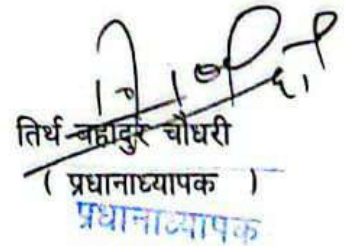 तिर्थ बहादुर चौधरी
( प्रधानाध्यापक )
प्रधानाध्यापक